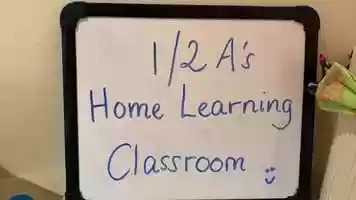 1/2 A's
Home Learning
Classroom